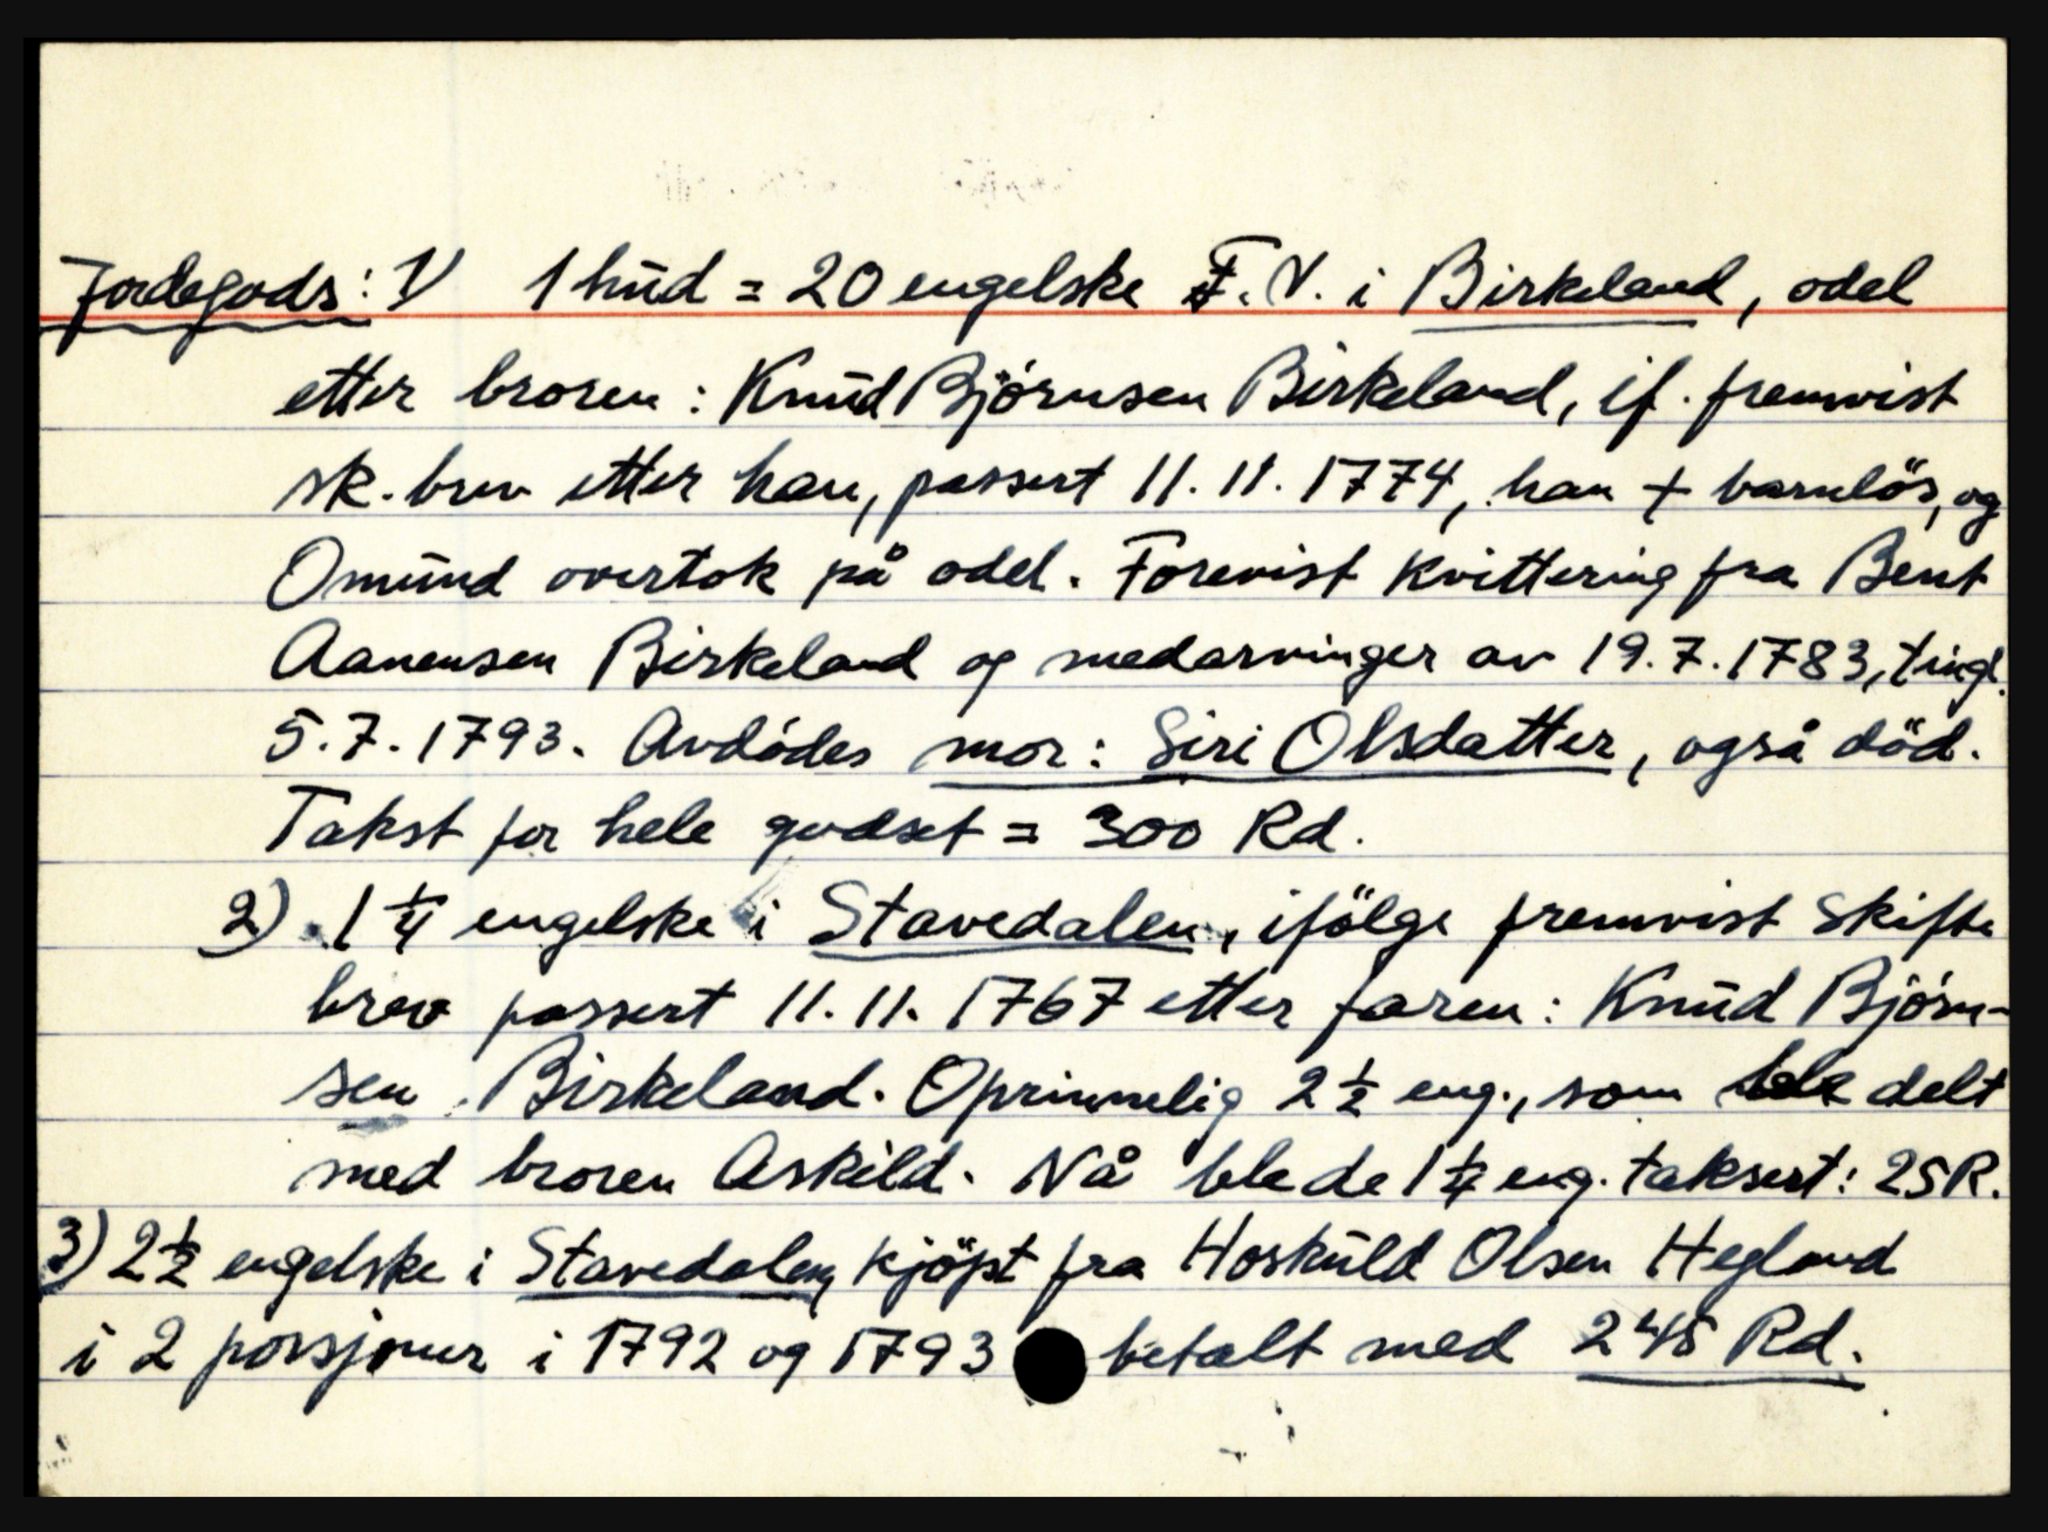 Jordegods: 1) 1 hud = 20 engelske F. V. i Birkeland, odel
etter broren: Knud Bjørnsen Birkeland, if. fremvist
sk. brev etter han, passert 11. 11. 1774, han + barnlös, og
Omund overtok på odel. Forevist Kvittering fra Bent
Aanensen Birkeland og medarvinger av 19. 7. 1783, tingl.
5. 7. 1793. Avdødes mor: Siri Olsdatter, også död.
Takst for hele godset = 300 Rd.
2) 1 1/4 engelske i Stavedalen, ifölge fremvist Skifte
brev passert 11. 11. 1767 etter faren: Knud Bjørn-
sen Birkeland. Oprinnelig 2 1/2 eng., som ble delt
med broren Askild. Nå ble de 1 1/4 eng. taksert: 25 R.
3) 2 1/2 engelske i Stavedalen, kjöpt fra Hoskuld Olsen Hegland
i 2 porsjoner i 1792 og 1793 betalt med 245 Rd.